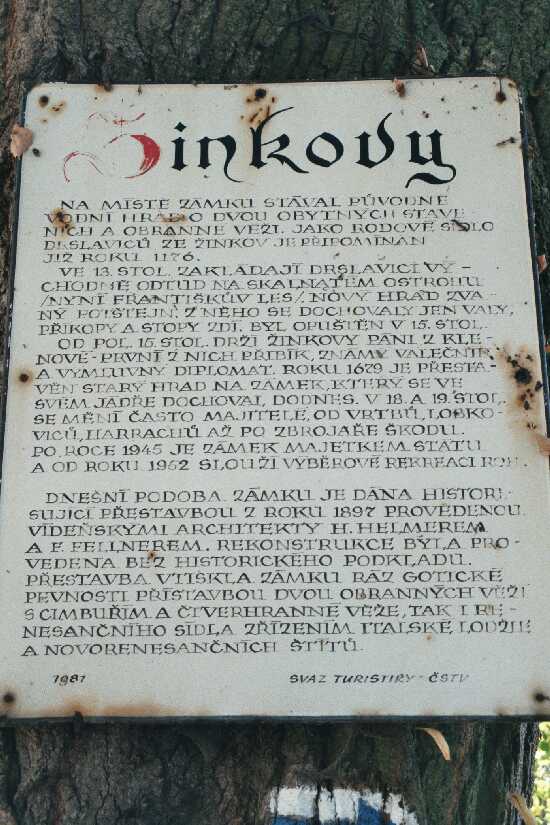 Žinkovy
NA MÍSTĚ ZÁMKU STÁVAL PŮVODNĚ
VODNÍ HRAD O DVOU OBYTNÝCH STAVE
NÍCH A OBRANNÉ VĚŽI. JAKO RODOVÉ SÍDLO
DRSLAVICŮ ZE ŽINKOV JE PŘIPOMÍNÁN
JIŽ ROKU 1176.
VE 13. STOL. ZAKLÁDAJÍ DRSLAVICI VÝ-
CHODNĚ ODTUD NA SKALNATÉM OSTROHU
/NYNÍ FRANTIŠKŮV LES/ NOVÝ HRAD ZVA-
NÝ POTŠTEJN. Z NĚHO SE DOCHOVALY JEN VALY,
PŘÍKOPY A STOPY ZDÍ. BYL OPUŠTĚN V 15. STOL.
OD POL. 15. STOL. DRŽÍ ŽINKOVY PÁNI Z KLE-
NOVÉ - PRVNÍ Z NICH PŘIBÍK, ZNÁMÝ VÁLEČNÍK
A VÝMLUVNÝ DIPLOMAT. ROKU 1679 JE PŘESTA-
VĚN STARÝ HRAD NA ZÁMEK, KTERÝ SE VE
SVÉM JÁDŘE DOCHOVAL DODNES. V 18. A 19. STOL.
SE MĚNÍ ČASTO MAJITELÉ, OD VRTBŮ, LOBKO-
VICŮ, HARRACHŮ AŽ PO ZBROJAŘE ŠKODU.
PO ROCE 1945 JE ZÁMEK MAJETKEM STÁTU
A OD ROKU 1952 SLOUŽÍ VÝBĚROVÉ REKREACI ROH.
DNEŠNÍ PODOBA ZÁMKU JE DÁNA HISTORI-
SUJÍCÍ PŘESTAVBOU Z ROKU 1897 PROVEDENOU
VÍDEŇSKÝMI ARCHITEKTY H. HELMEREM
A F. FELLNEREM. REKONSTRUKCE BYLA PRO-
VEDENA BEZ HISTORICKÉHO PODKLADU.
PŘESTAVBA VTISKLA ZÁMKU RÁZ GOTICKÉ
PEVNOSTI PŘÍSTAVBOU DVOU OBRANNÝCH VĚŽÍ
S CIMBUŘÍM A ČTVERHRANNÉ VĚŽE, TAK I RE-
NESANČNÍHO SÍDLA ZŘÍZENÍM ITALSKÉ LODŽIE
A NOVORENESANČNÍCH ŠTÍTŮ.
1981 SVAZ TURISTIKY - ČSTV